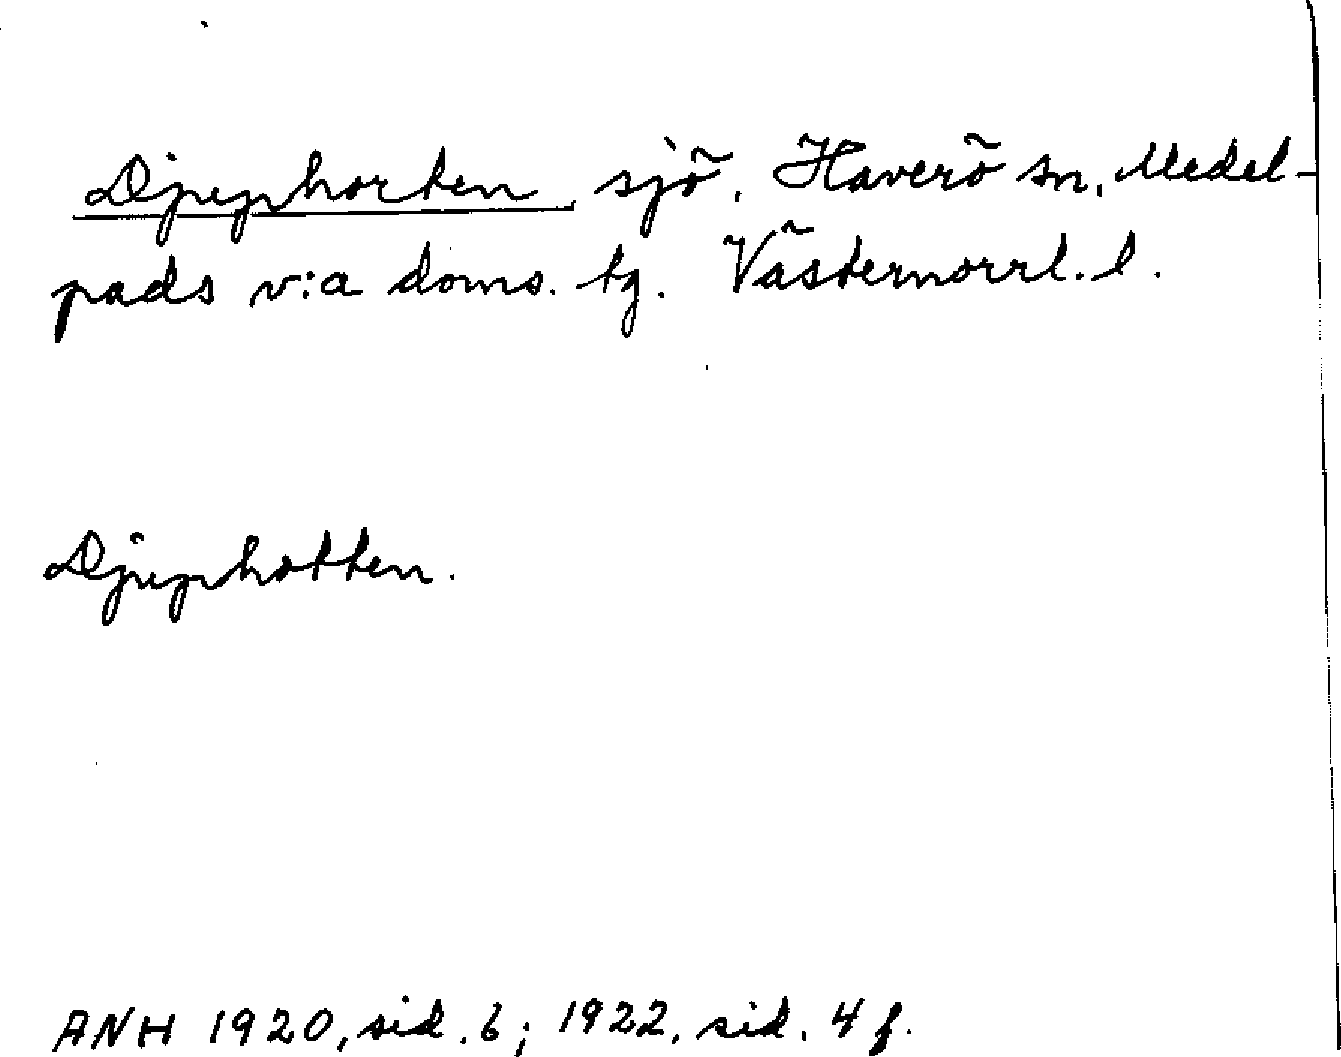 Djuphorten, sjö, Haverö sn, Medel-
pads v:a doms. tg. Västernorrl. l.
Djuphotten.
ANH 1920, sid. 6; 1922, sid. 4 f.